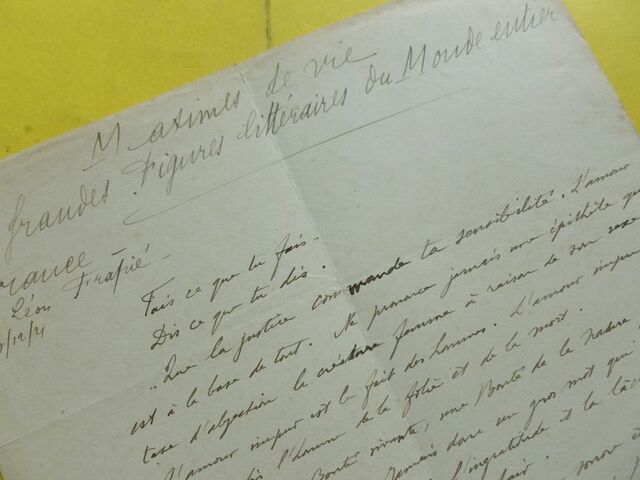 Maximes de vie
Grandes Figures littéraires du Monde entier
France -
Léon Frapié -
/12/21
Fais ce que tu fais -
Dis ce que tu dis.
"Que la justice commande ta sensibilité. L'amour
est à la base de tout. Ne prononce jamais une épithète qui
taxe d'abjection la créature femme à raison de son sexe
L'amour impur est le fait des hommes. L'amour impur
l'homme de la folie et de la mort.
Bonté vivante, une Bonté de la nature
Jamais donc un gros mot qui
l'ingratitude et la lâc